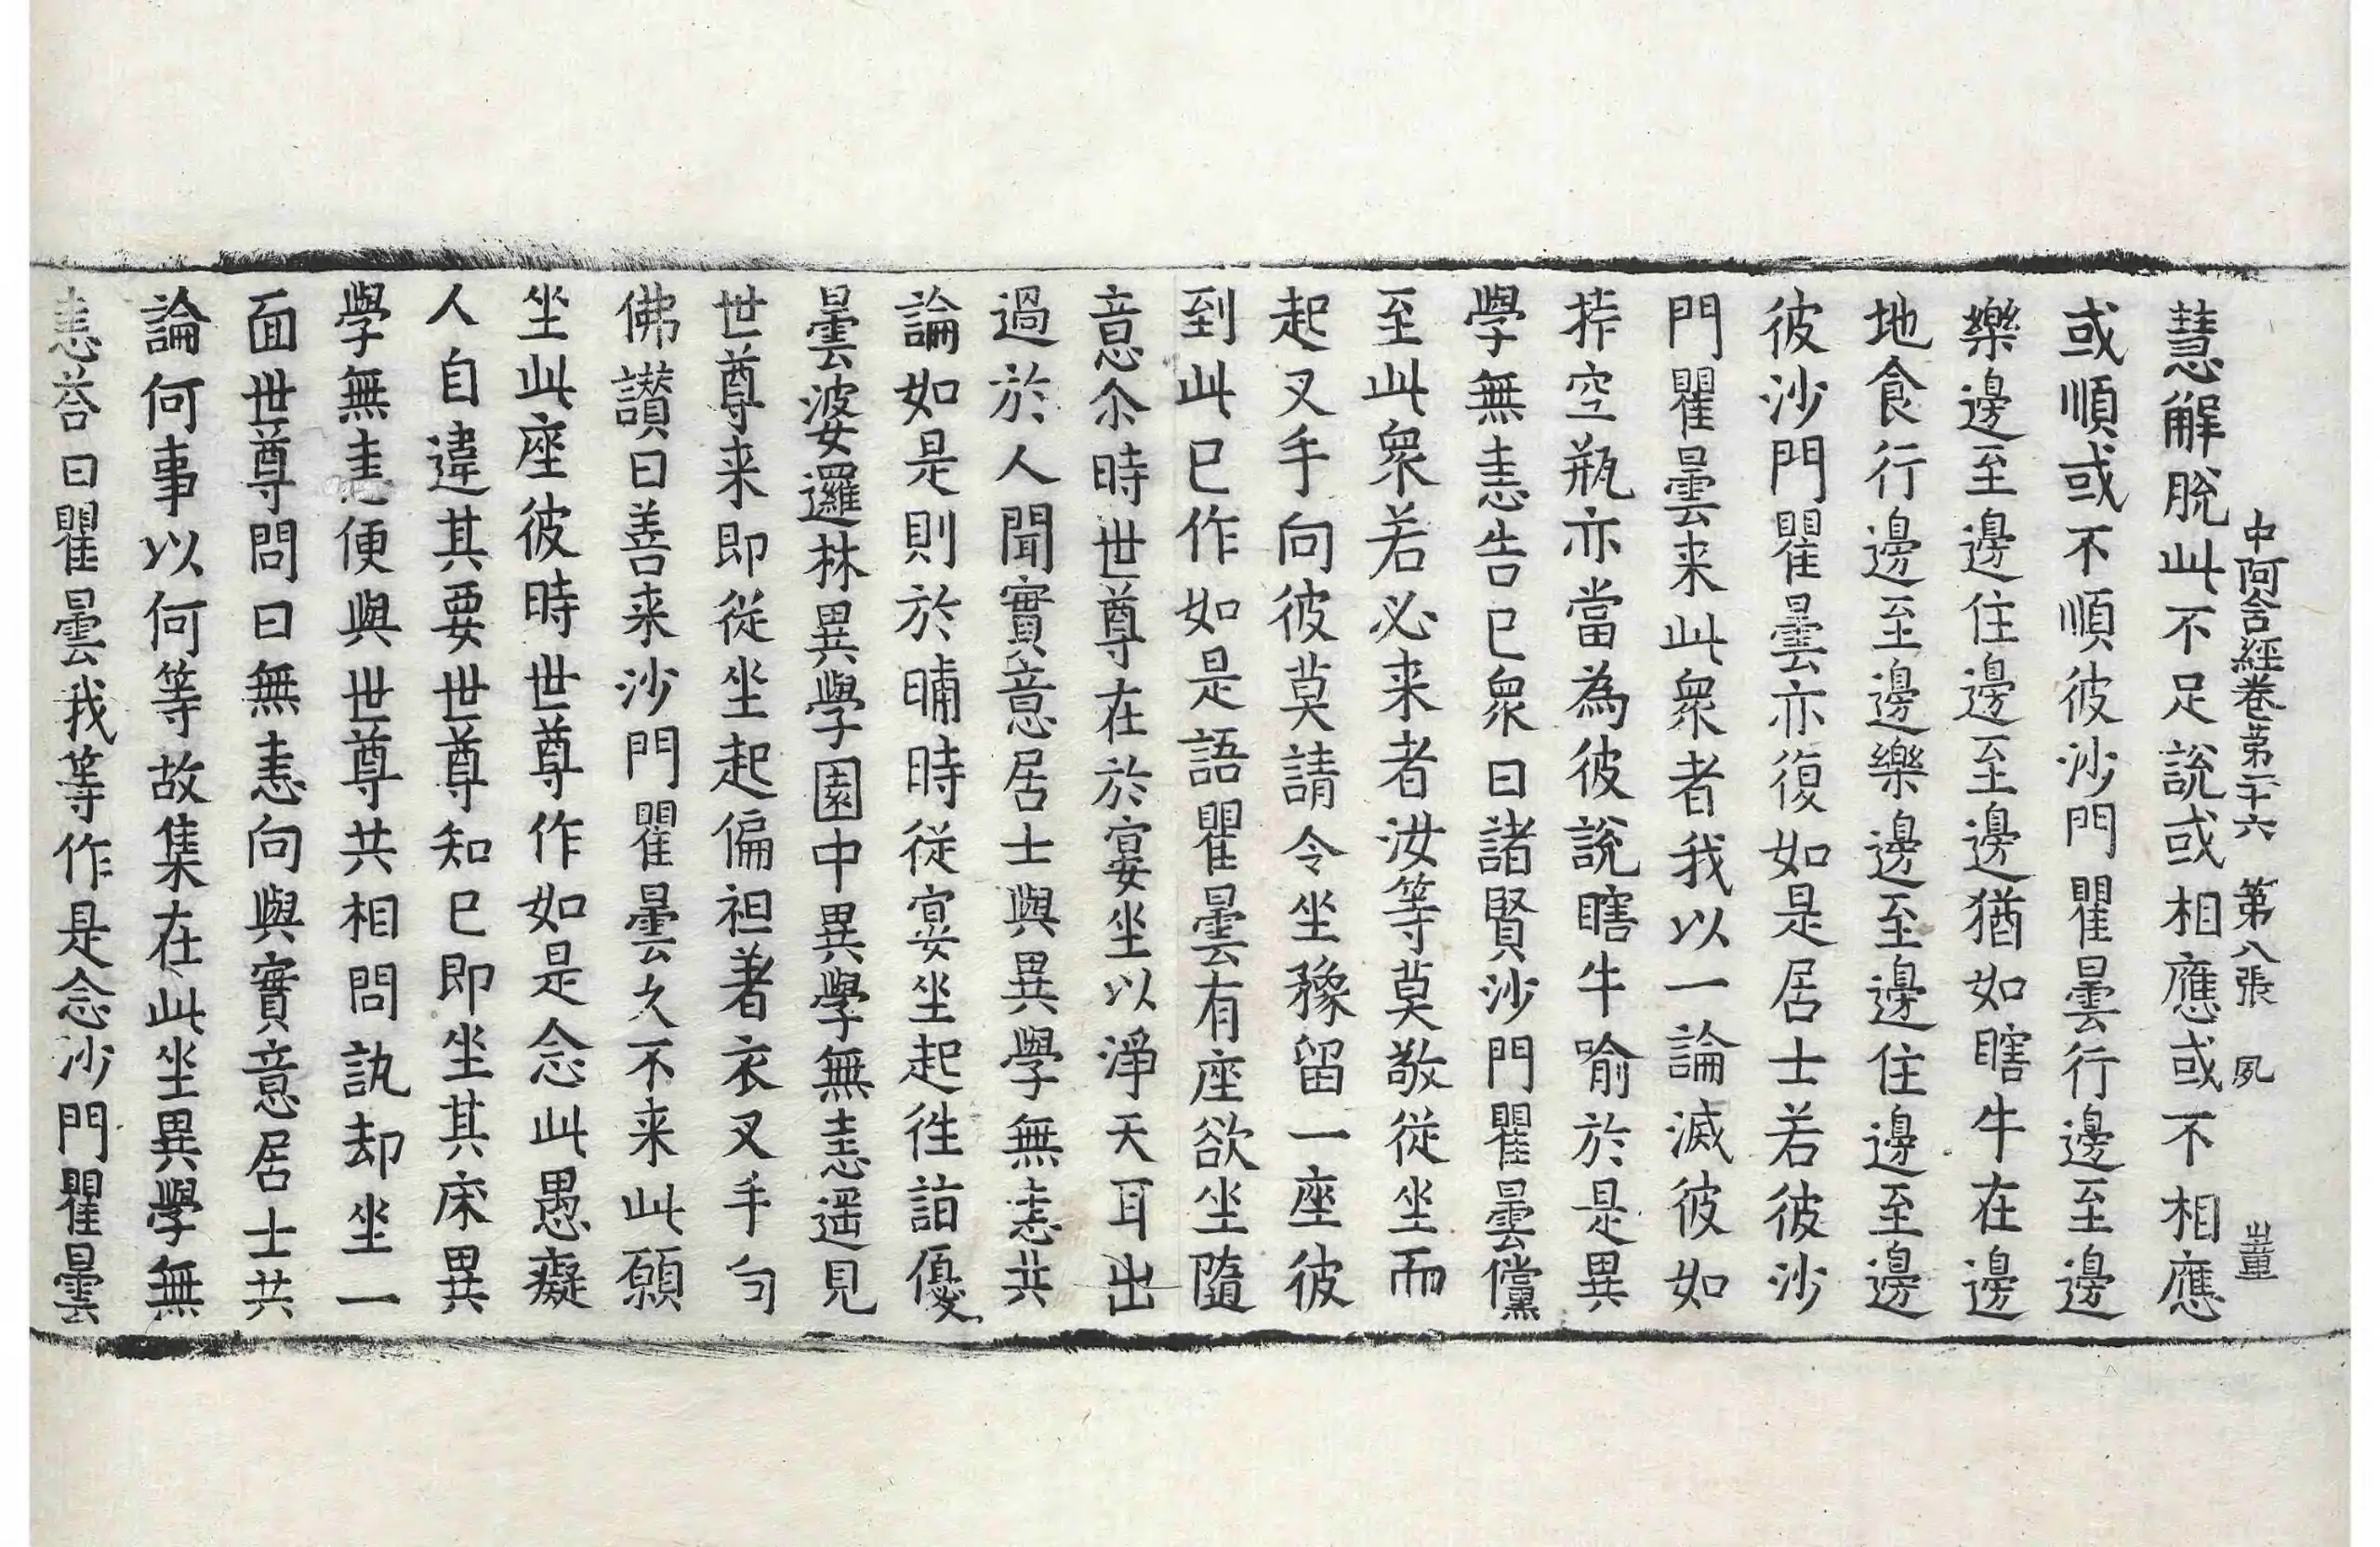 中阿含經卷第二十六 第八張 夙
慧解脫此不足說或相應或不相應
或順或不順彼沙門瞿曇行邊至邊
樂邊至邊住邊至邊猶如瞎牛在邊
地食行邊至邊樂邊至邊住邊至邊
彼沙門瞿曇亦復如是居士若彼沙
門瞿曇来此衆者我以一論滅彼如
捽空瓶亦當為彼說瞎牛喻於是異
學無恚告已衆曰諸賢沙門瞿曇儻
至此衆若必来者汝等莫敬從坐而
起叉手向彼莫請令坐豫留一座彼
到此已作如是語瞿曇有座欲坐隨
意尒時世尊在於宴坐以淨天耳出
過於人聞實意居士與異學無恚共
論如是則於晡時從宴坐起徃詣優
曇婆邏林異學園中異學無恚遥見
世尊来即從坐起偏袒著衣叉手向
佛讃曰善来沙門瞿曇久不来此願
坐此座彼時世尊作如是念此愚癡
人自違其要世尊知已即坐其床異
學無恚便與世尊共相問訊却坐一
面世尊問曰無恚向與實意居士共
論何事以何等故集在此坐異學無
恚荅曰瞿曇我等作是念沙門瞿曇